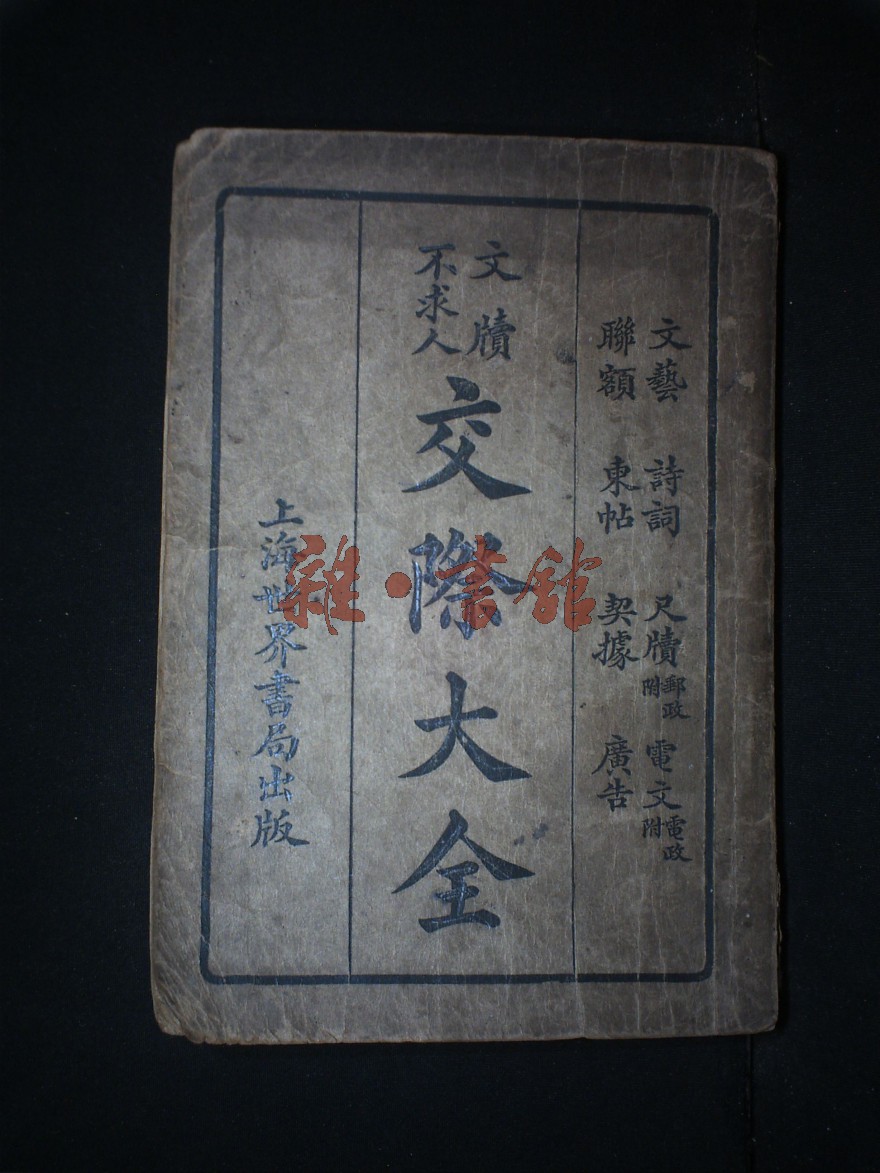 文藝 詩詞 尺牘 郵政附 電文 電政附
聯額 柬帖 契據 廣告
文牘
不求人
交際大全
上海世界書局出版
雜·書館